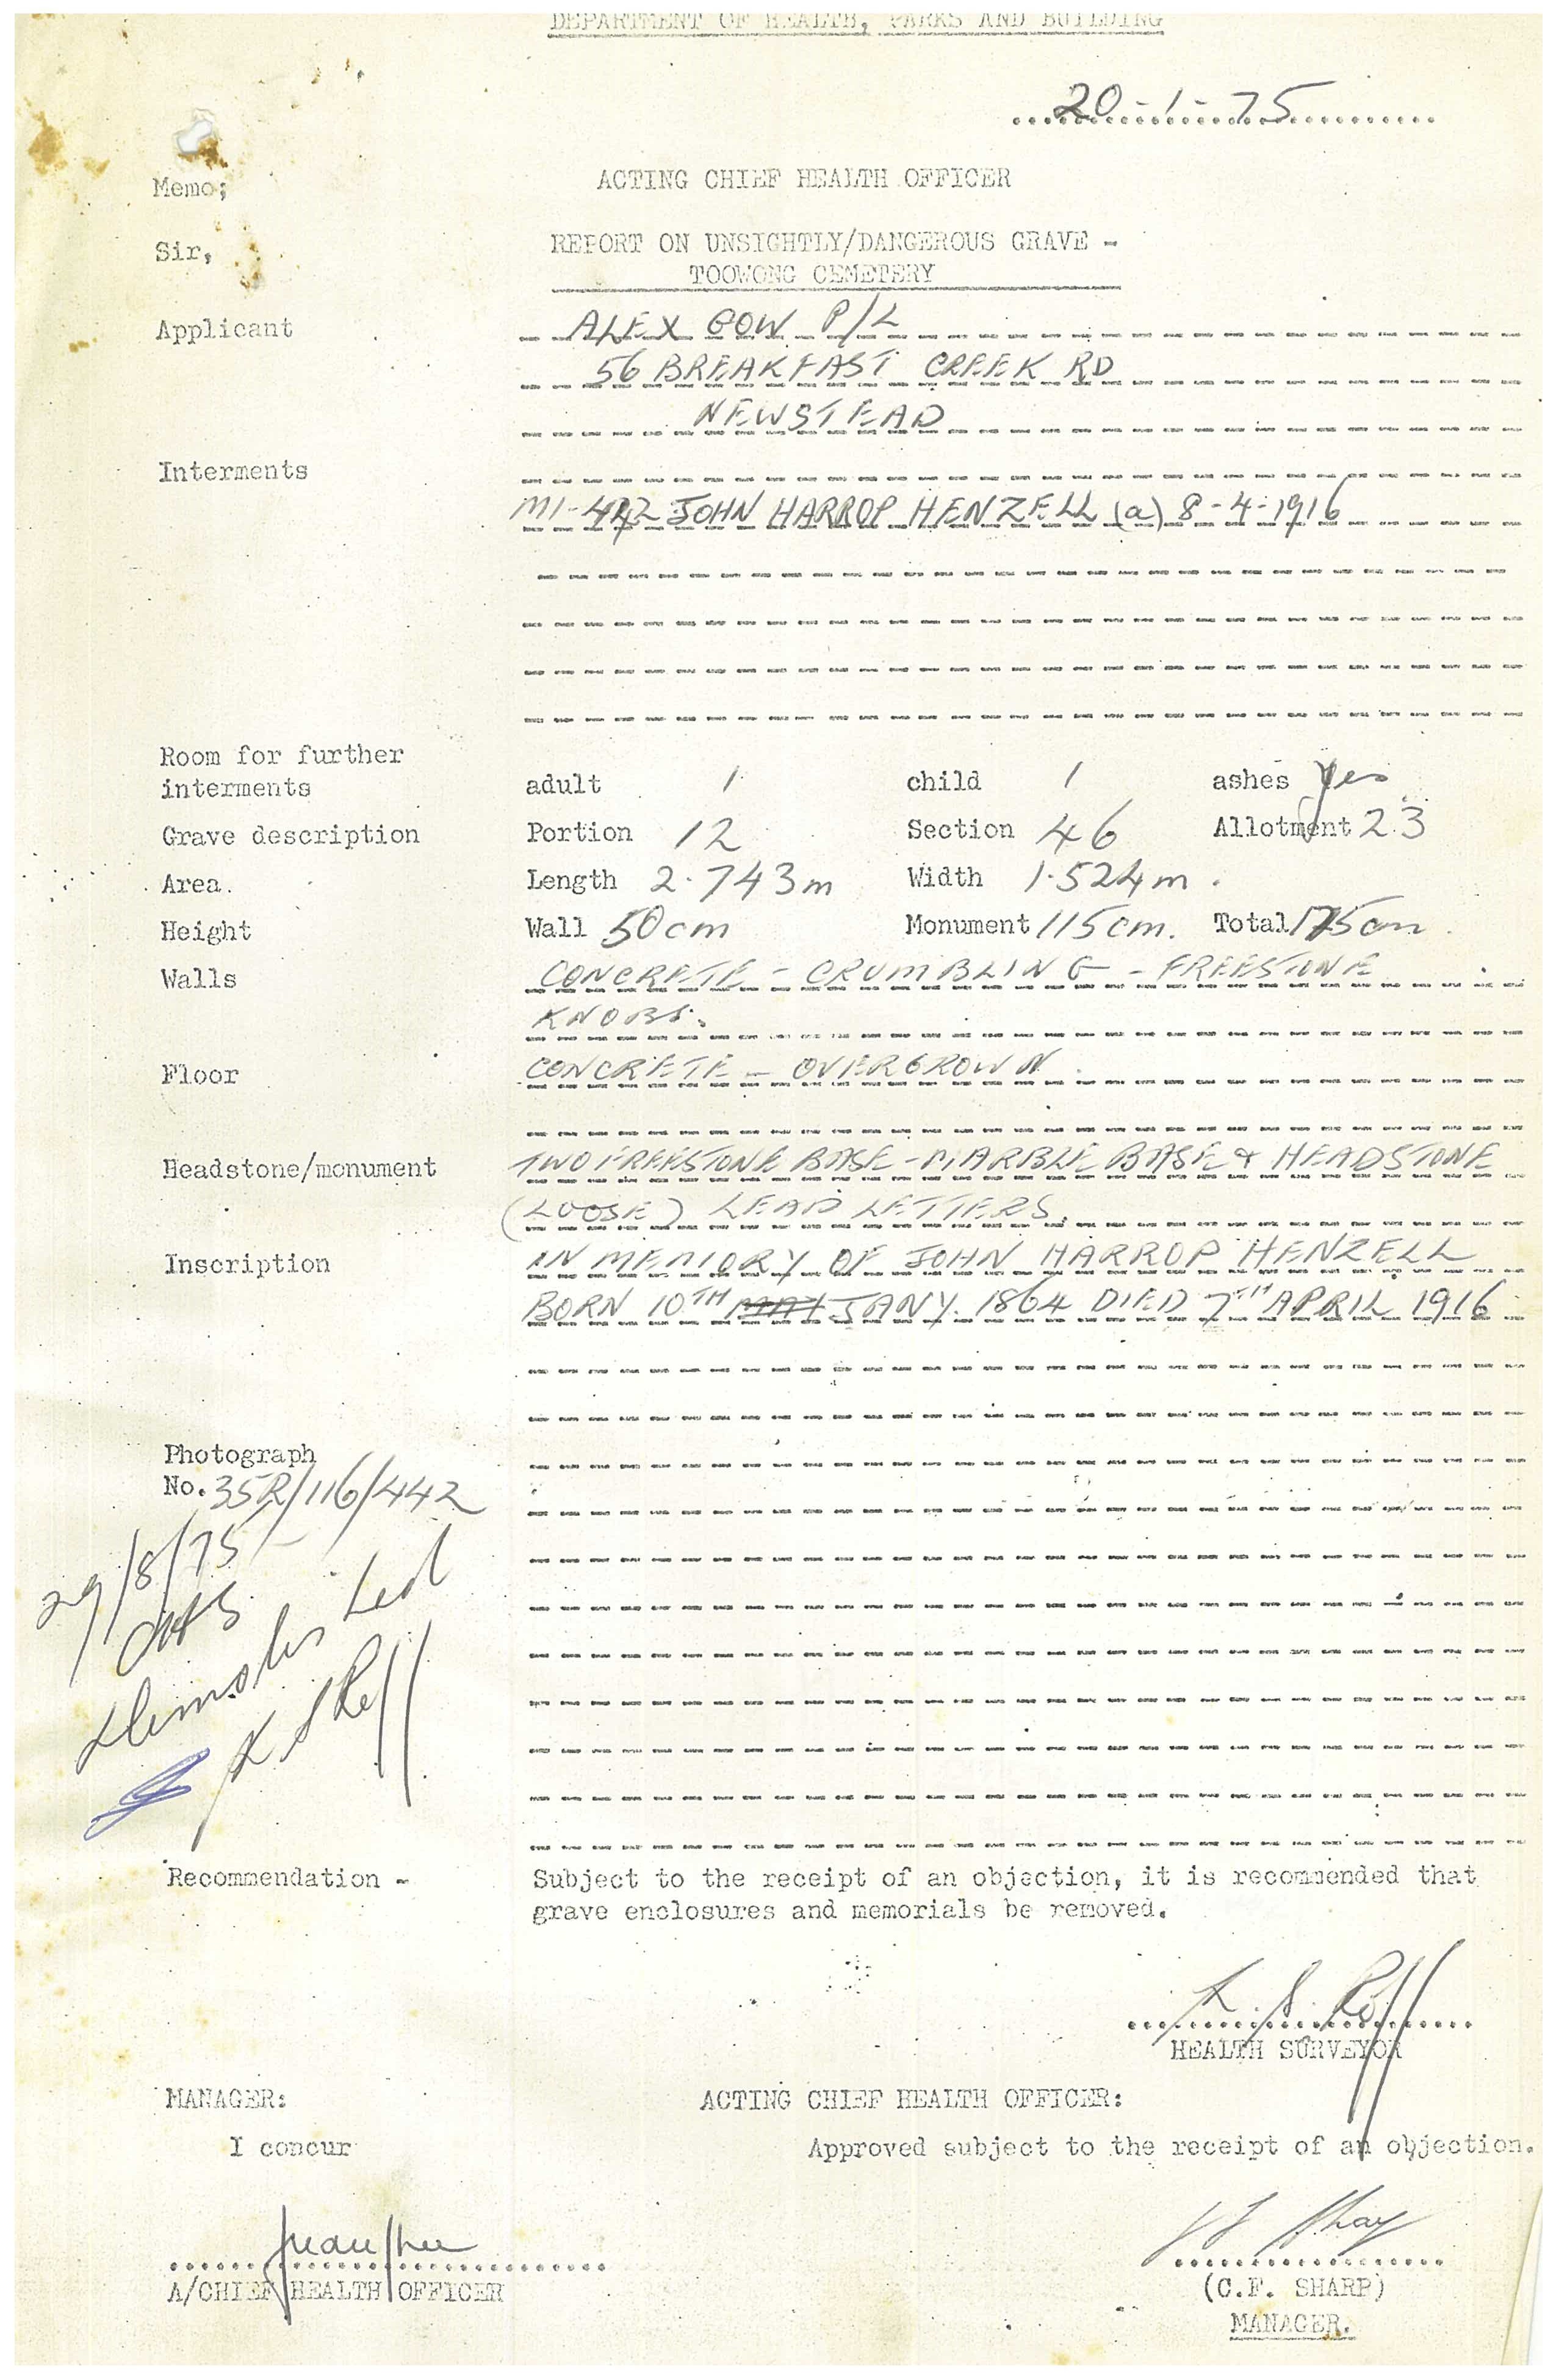 DEPARTMENT OF HEALTH, PARKS AND BUILDING
20-1-75
Memo; ACTING CHIEF HEALTH OFFICER
Sir, REPORT ON UNSIGHTLY/DANGEROUS GRAVE -
TOOWONG CEMETERY
Applicant ALEX GOW P/L
56 BREAKFAST CREEK RD
NEWSTEAD
Interments
M1-442 JOHN HARROP HENZELL (a) 8-4-1916
Room for further
interments adult 1 child 1 ashes Yes
Grave description Portion 12 Section 46 Allotment 23
Area. Length 2.743m Width 1.524m.
Height Wall 50cm Monument 115cm. Total 175cm.
Walls CONCRETE - CRUMBLING - FREESTONE
KNOBS.
Floor CONCRETE - OVERGROWN.
Headstone/monument TWO FREESTONE BASE - MARBLE BASE & HEADSTONE
(LOOSE) LEAD LETTERS.
Inscription IN MEMORY OF JOHN HARROP HENZELL
BORN 10TH MAY JANY. 1864 DIED 7TH APRIL 1916
Photograph
No. 35R/116/442
29/8/75
Recommendation - Subject to the receipt of an objection, it is recommended that
grave enclosures and memorials be removed.
HEALTH SURVEYOR
MANAGER: ACTING CHIEF HEALTH OFFICER:
I concur Approved subject to the receipt of an objection.
A/CHIEF HEALTH OFFICER (C.F. SHARP)
MANAGER.